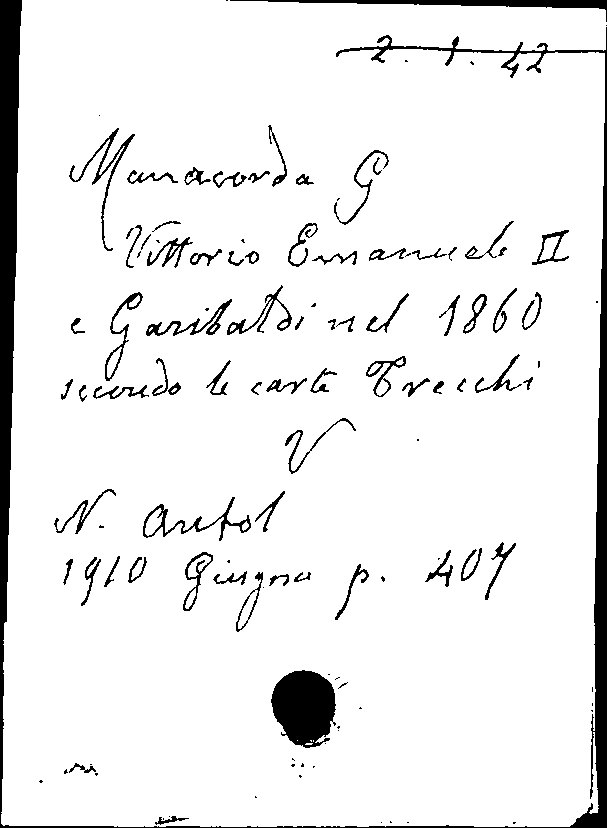 2. 1. 42
Manacorda G
Vittorio Emanuele II
e Garibaldi nel 1860
secondo le carte Trecchi
V
N. Antol
1910 Giugno p. 407